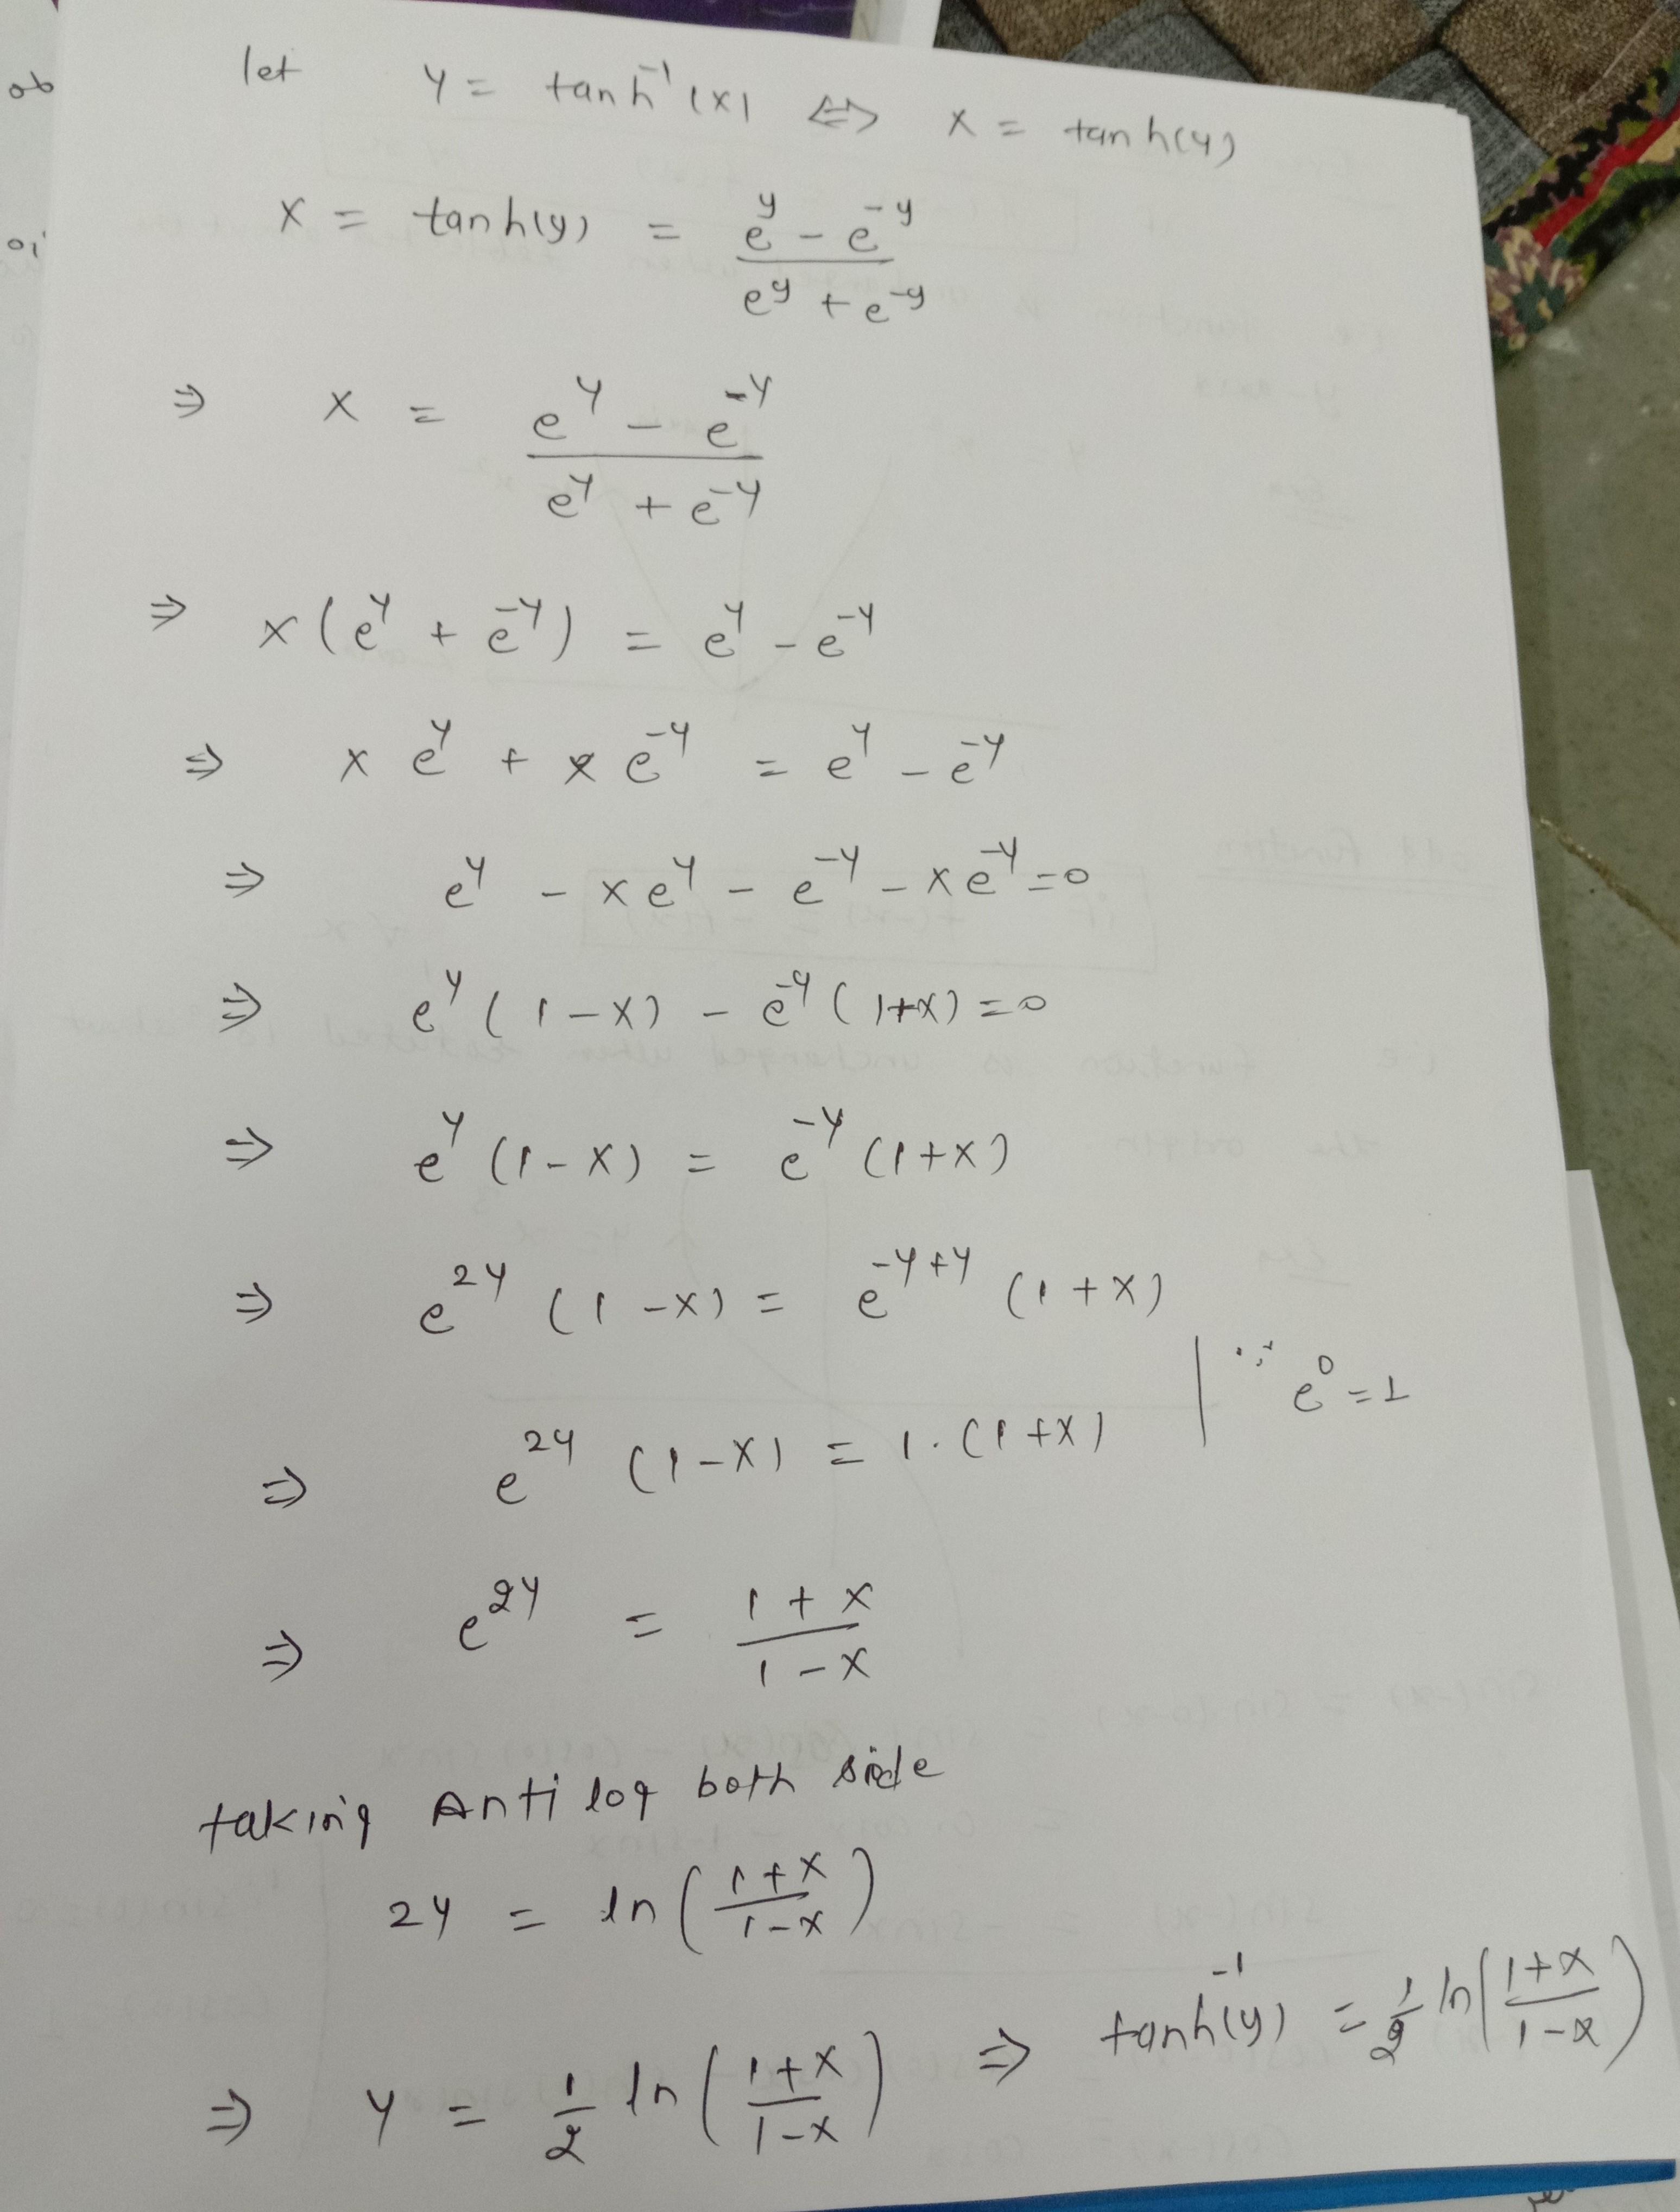 let y = tanh⁻¹(x) ⇔ x = tanh(y)
x = tanh(y) = (e^y - e^-y) / (e^y + e^-y)
⇒ x = (e^y - e^-y) / (e^y + e^-y)
⇒ x(e^y + e^-y) = e^y - e^-y
⇒ x e^y + x e^-y = e^y - e^-y
⇒ e^y - xe^y - e^-y - xe^-y = 0
⇒ e^y (1-x) - e^-y (1+x) = 0
⇒ e^y (1-x) = e^-y (1+x)
⇒ e^2y (1-x) = e^-y+y (1+x)
⇒ e^2y (1-x) = 1·(1+x) | ∵ e^0 = 1
⇒ e^2y = (1+x) / (1-x)
taking Anti log both side
2y = ln((1+x)/(1-x))
⇒ y = 1/2 ln((1+x)/(1-x)) ⇒ tanh⁻¹(y) = 1/2 ln((1+x)/(1-x))